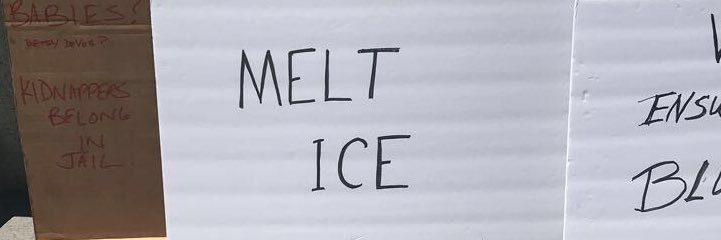 BABIES?
BETSY DEVOS?
KIDNAPPERS
BELONG
IN
JAIL
MELT
ICE
ENSU
BLU